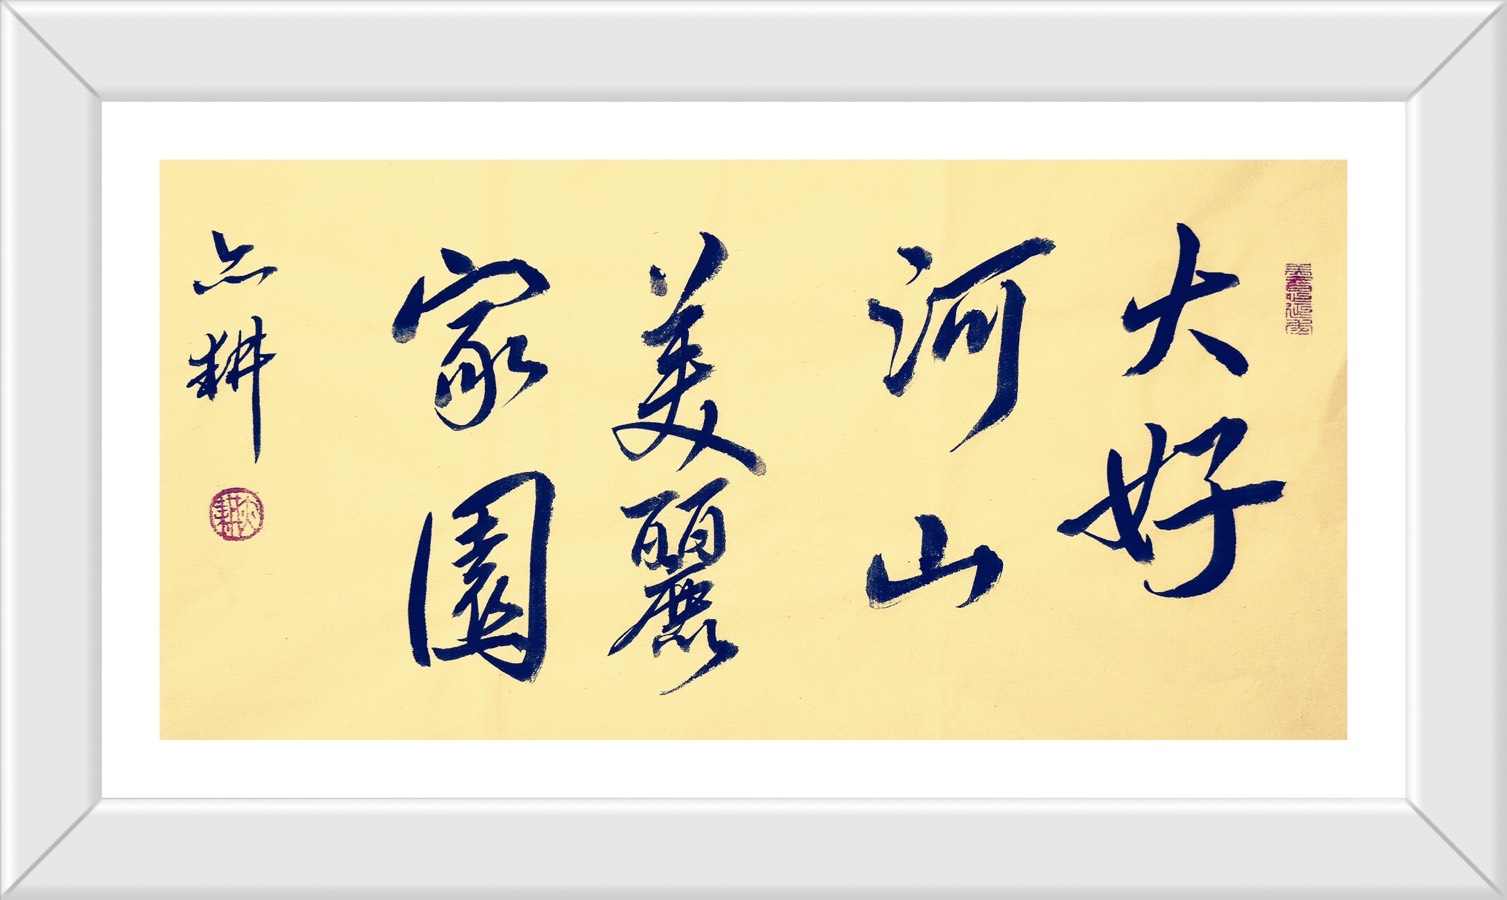 大好
河山
美麗
家園
耕